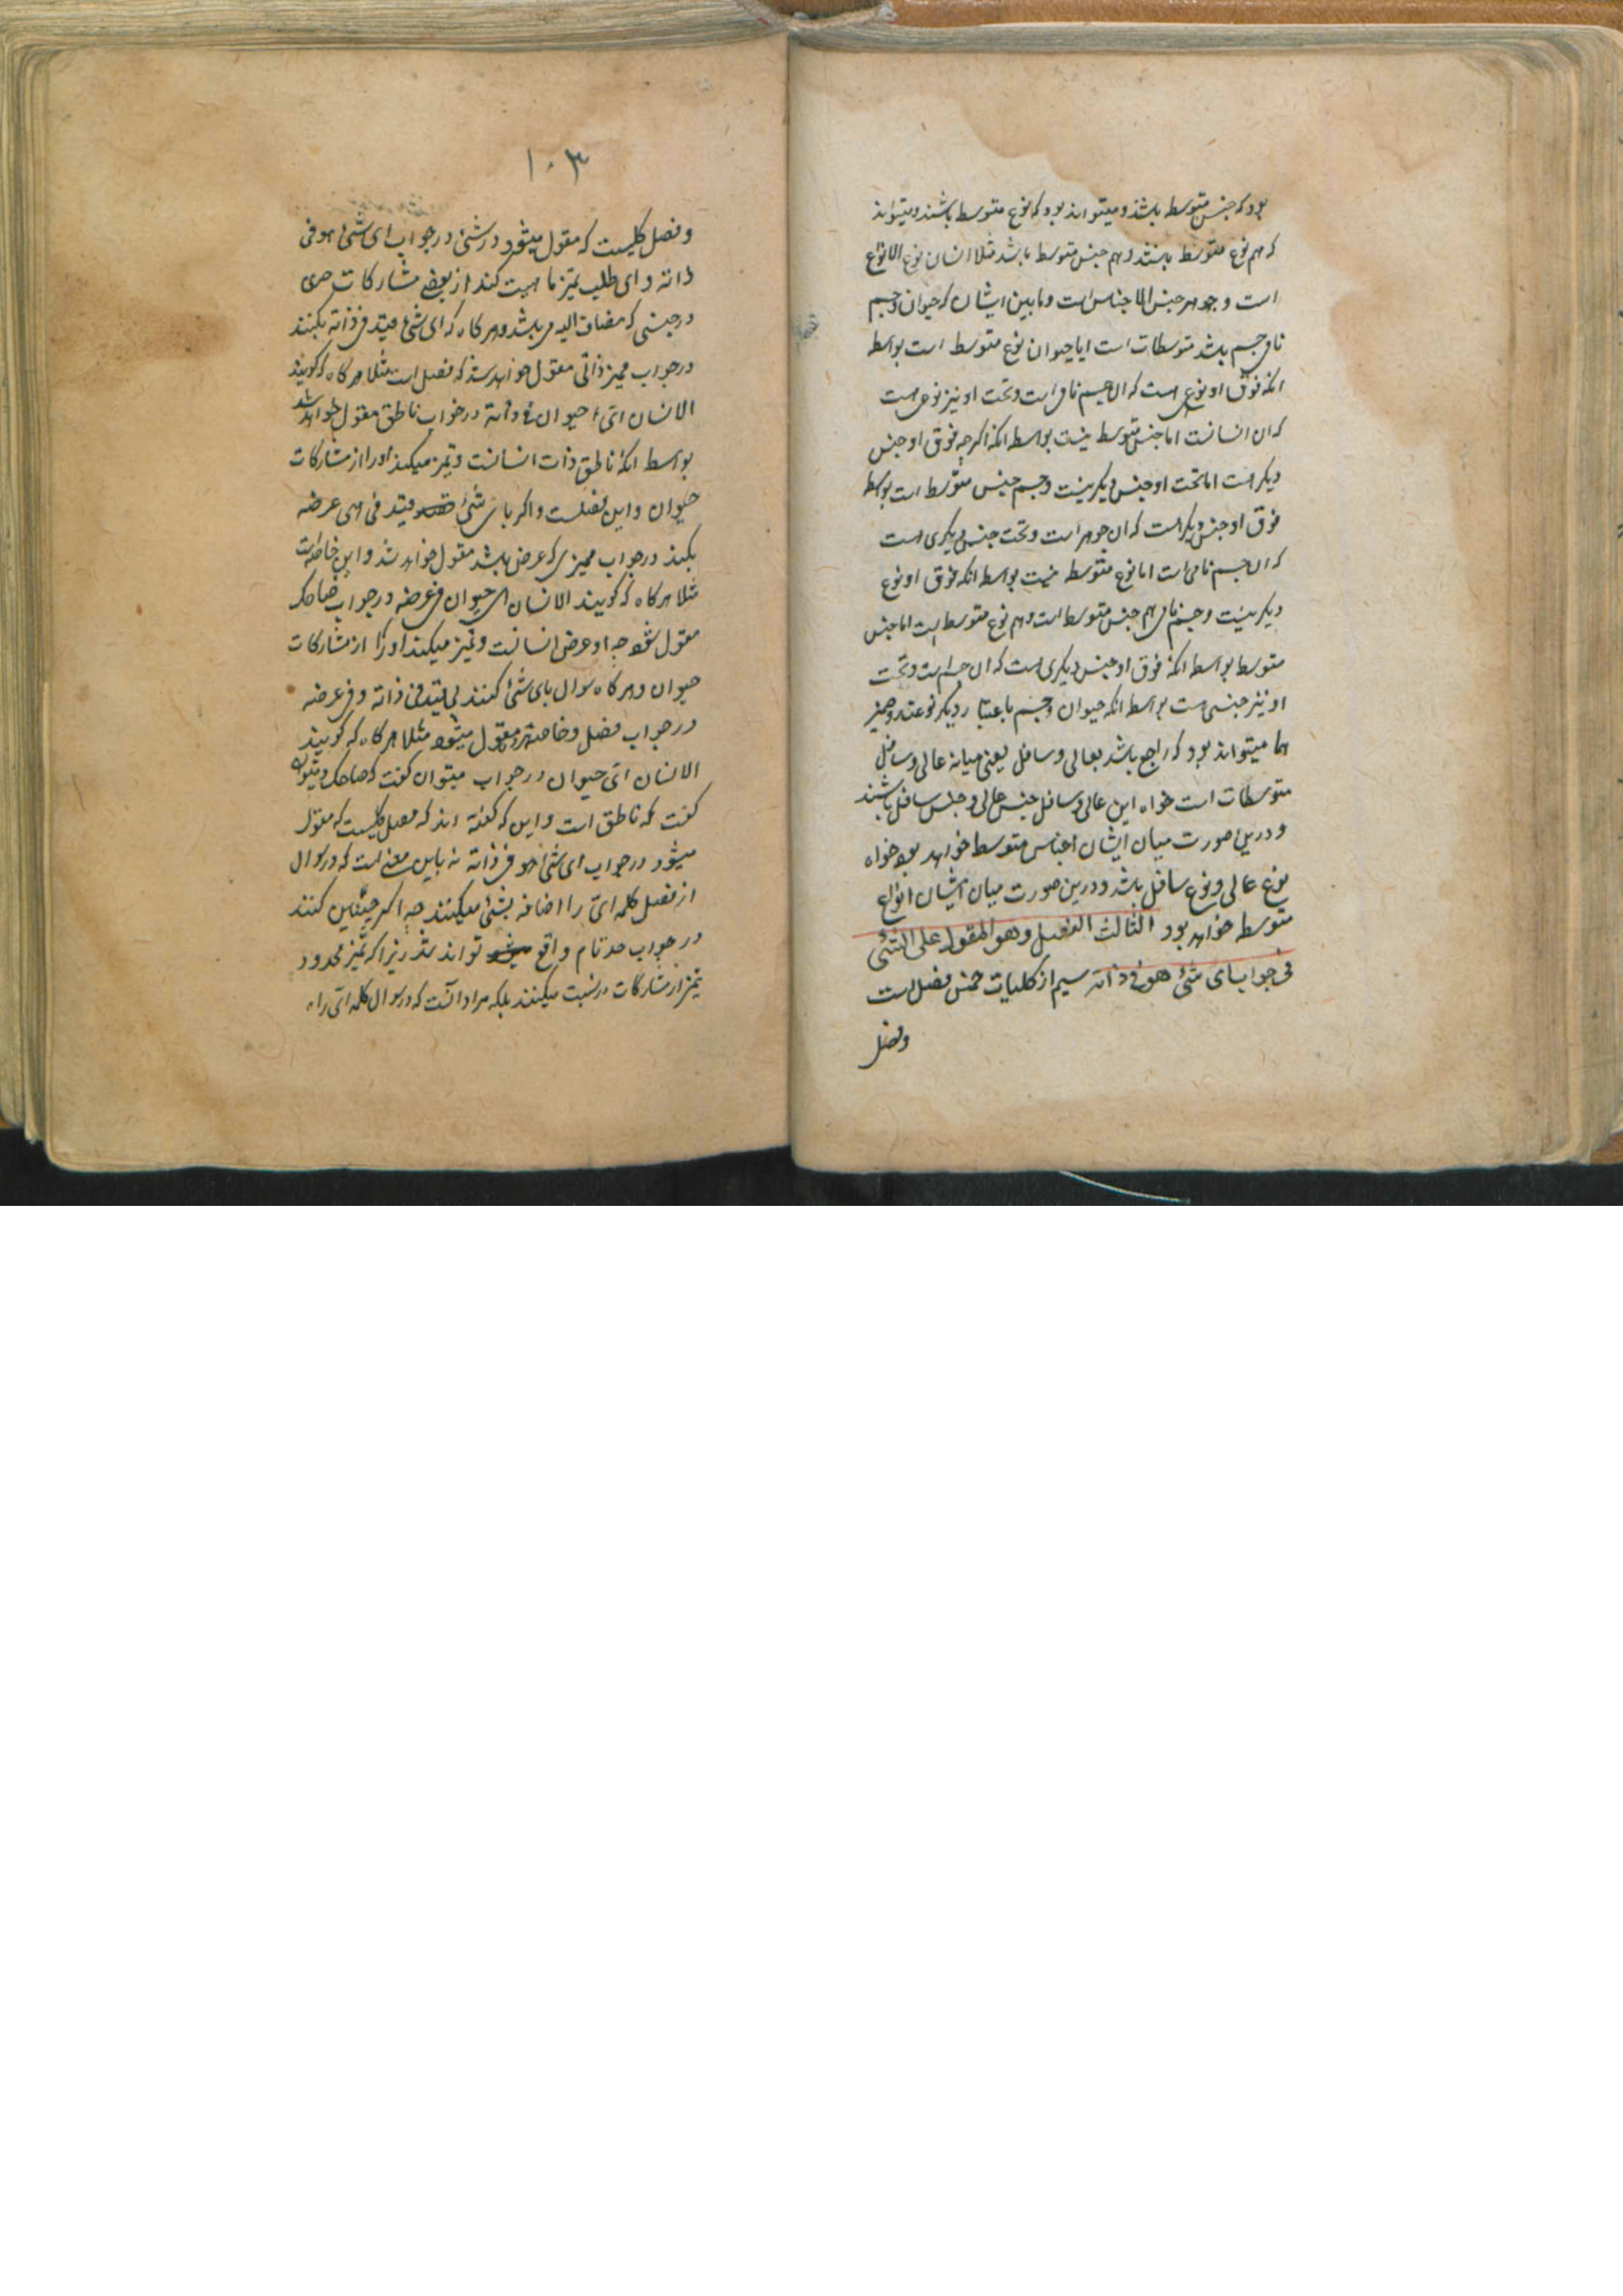 بود که جنس متوسط باشد و میتواند بود که نوع متوسط باشند و میتواند
که هم نوع متوسط باشند و هم جنس متوسط باشد مثلا انسان نوع الانواع
است و جوهر جنس الاجناس است و مابین ایشان که حیوان و جسم
نامی و جسم باشد متوسطات است اما حیوان نوع متوسط است بواسطه
انکه فوق او نوعی هست که ان جسم نامی است و تحت او نیز نوعی هست
که ان انسانست اما جنس متوسط نیست بواسطه انکه اکرچه فوق او جنس
دیکر هست اما تحت او جنس دیکر نیست و جسم جنس متوسط است بواسطه
فوق او جنس دیکر هست که ان جوهر است و تحت جنس دیکری هست
که ان جسم نامی است اما نوع متوسط نیست بواسطه انکه فوق او نوع
دیکر نیست و جسم نامی هم جنس متوسط است و هم نوع متوسط است اما جنس
متوسط بواسطه انکه فوق او جنس دیکری هست که ان جسم است و تحت
او نیز جنسی هست بواسطه انکه حیوان و جسم باعتبار دیکر نوعند و ضمیر
هما میتواند بود که راجع باشد بعالی و سافل یعنی میانه عالی و سافل
متوسطات است خواه این عالی و سافل جنس عالی و جنس سافل باشند
و درین صورت میان ایشان اجناس متوسط خواهد بود خواه
نوع عالی و نوع سافل باشد و درین صورت میان ایشان انواع
متوسط خواهد بود الثالث الفصل وهو المقول علی الشئ
فی جواب ای شئ هو فی ذاته سیم از کلیات خمس فصل است
وفصل
۱۰۳
وفصل کلیست که مقول میشود در شئ در جواب ای شئ هو فی
ذاته و ای طلب تمیز ماهیت کند از بعضی مشارکات وی
در جنسی که مضاف الیه وی باشد و هر کاه که ای شئ مقید فی ذاته بکنند
در جواب ممیز ذاتی مقول خواهد شد که فصل است مثلا هر کاه که کویند
الانسان ای حیوان فی ذاته در جواب ناطق مقول خواهد شد
بواسطه انکه ناطق ذات انسانست و تمیز میکند او را از مشارکات
حیوان و این فصلست و اکر بای شئ مقید فی ای عرضه
بکند در جواب ممیزی که عرض باشد مقول خواهد شد و این خاصه است
مثلا هر کاه که کویند الانسان ای حیوان فی عرضه در جواب ضاحک
مقول شود چه او عرض انسانست و تمیز میکند او را از مشارکات
حیوان و هر کاه سوال بای شئ کنند بی قید فی ذاته و فی عرضه
در جواب فصل و خاصه هر دو مقول میشود مثلا هر کاه که کویند
الانسان ای حیوان در جواب میتوان کفت که ضاحک و میتوان
کفت که ناطق است و این که کفته اند که فصل کلیست که مقول
میشود در جواب ای شئ هو فی ذاته نه باین معنی است که در سوال
از فصل کلمه ای را اضافه بشئ میکنند چه اکر چنین کنند
در جواب حد تام واقع تواند شد زیرا که تمیز محدود
تمیز از مشارکات در میکنند بلکه مراد آنست که در سوال کلمه ای را